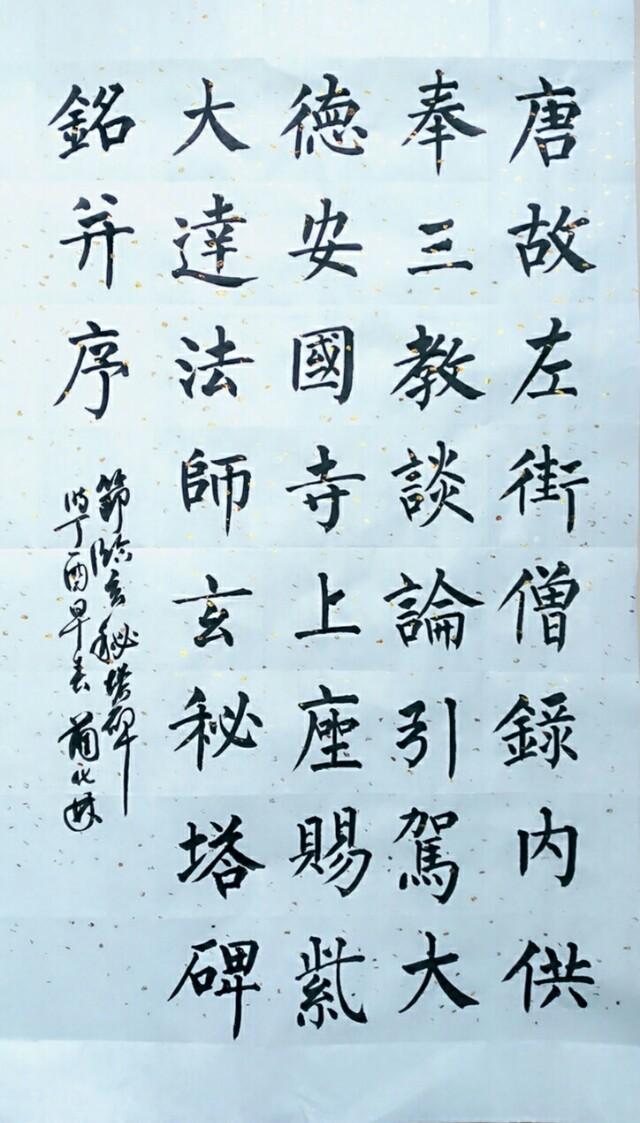 唐故左街僧録内供
奉三教談論引駕大
德安國寺上座賜紫
大達法師玄秘塔碑
銘并序
節臨玄秘塔碑
時丁酉早春